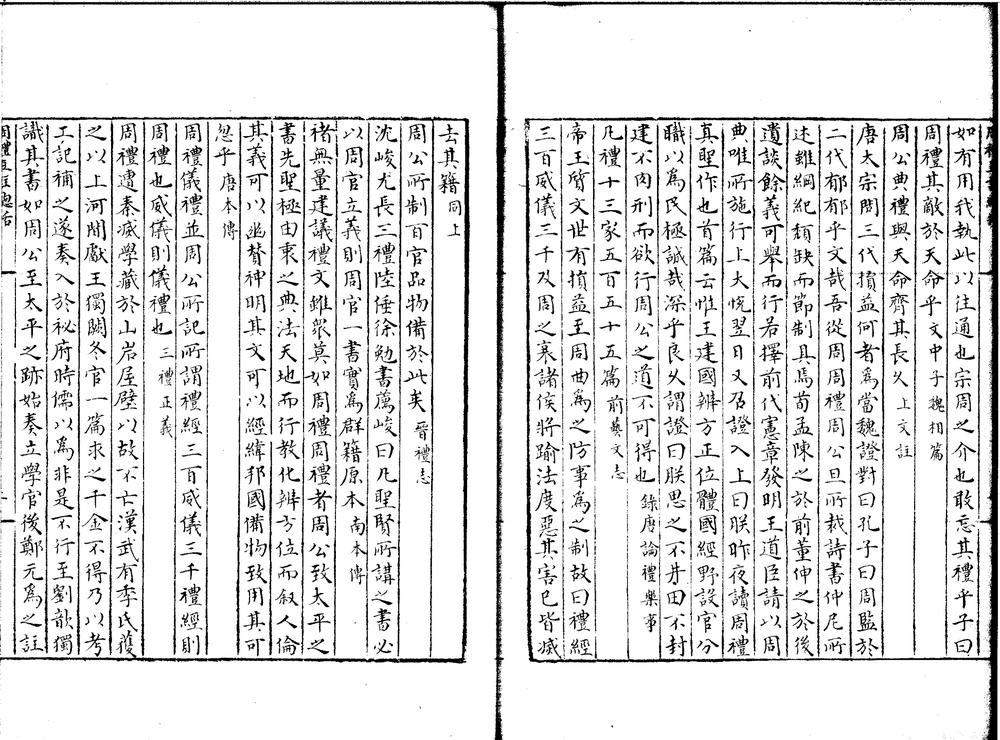 如有用我執此以往通也宗周之介也敢忘其禮乎子曰
周禮其敵於天命乎文中子魏相篇
周公典禮與天命齊其長久上文註
唐太宗問三代損益何者為當魏證對曰孔子曰周監於
二代郁郁乎文哉吾從周周禮周公旦所裁詩書仲尼所
述雖綱紀頹缺而節制具焉荀孟陳之於前董仲之於後
遺談餘義可舉而行若擇前代憲章發明王道臣請以周
典唯所施行上大悅翌日又召證入上曰朕昨夜讀周禮
真聖作也首篇云惟王建國辨方正位體國經野設官分
職以為民極誠哉深乎良久謂證曰朕思之不井田不封
建不肉刑而欲行周公之道不可得也錄唐論禮樂事
凡禮十三家五百五十五篇前藝文志
帝王質文世有損益至周曲為之防事為之制故曰禮經
三百威儀三千及周之衰諸侯將踰法度惡其害已皆滅
去其籍同上
周公所制百官品物備於此矣晉禮志
沈峻尤長三禮陸倕徐勉書薦峻曰凡聖賢所講之書必
以周官立義則周官一書實為群籍原本南本傳
褚無量建議禮文雖眾莫如周禮周禮者周公致太平之
書先聖極由衷之典法天地而行教化辨方位而叙人倫
其義可以幽贊神明其文可以經緯邦國備物致用其可
忽乎唐本傳
周禮儀禮並周公所記所謂禮經三百威儀三千禮經則
周禮也威儀則儀禮也三禮正義
周禮遭秦滅學藏於山岩屋壁以故不亡漢武有李氏獲
之以上河間獻王獨闕冬官一篇求之千金不得乃以考
工記補之遂奏入於祕府時儒以為非是不行至劉歆獨
識其書如周公至太平之跡始奏立學官後鄭元為之註